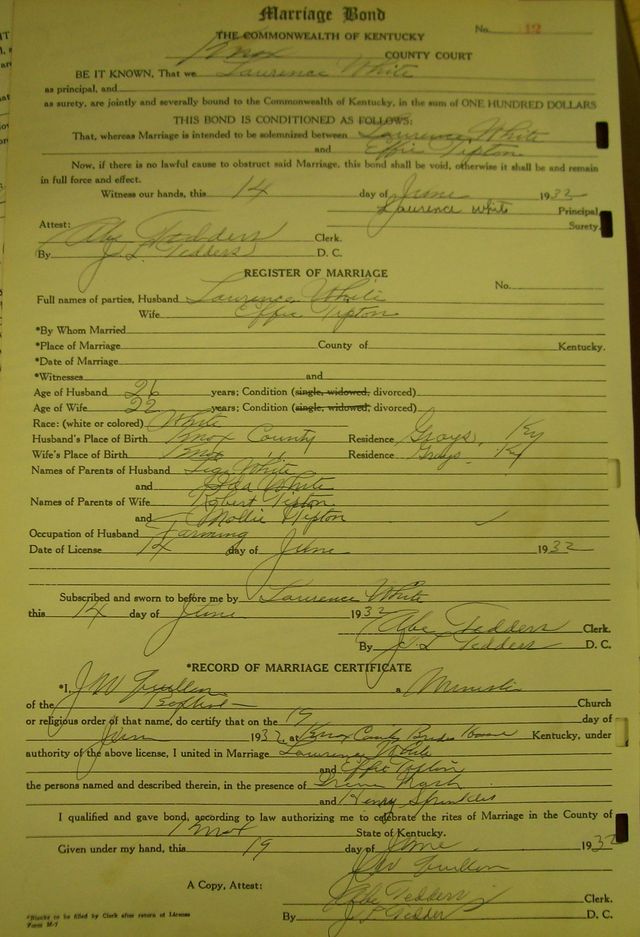 Marriage Bond
No. 12
THE COMMONWEALTH OF KENTUCKY
Knox COUNTY COURT
BE IT KNOWN, That we Lawrence White
as principal, and
as surety, are jointly and severally bound to the Commonwealth of Kentucky, in the sum of ONE HUNDRED DOLLARS
THIS BOND IS CONDITIONED AS FOLLOWS:
That, whereas Marriage is intended to be solemnized between Lawrence White
and Effie Tipton
Now, if there is no lawful cause to obstruct said Marriage, this bond shall be void, otherwise it shall be and remain
in full force and effect.
Witness our hands, this 14 day of June 1932
Lawrence White Principal
Surety.
Attest:
Abe Tedders Clerk.
By J. L. Tedders D. C.
REGISTER OF MARRIAGE
No.
Full names of parties, Husband Lawrence White
Wife Effie Tipton
*By Whom Married
*Place of Marriage County of Kentucky.
*Date of Marriage
*Witnesses and
Age of Husband 26 years; Condition (single, widowed, divorced)
Age of Wife 22 years; Condition (single, widowed, divorced)
Race: (white or colored) White
Husband's Place of Birth Knox County Residence Grays, Ky
Wife's Place of Birth Knox " Residence Grays, Ky
Names of Parents of Husband White
and White
Names of Parents of Wife Robert Tipton
and Mollie Tipton
Occupation of Husband Farming
Date of License 14 day of June 1932
Subscribed and sworn to before me by Lawrence White
this 14 day of June 1932
Abe Tedders Clerk.
By J. L. Tedders D. C.
*RECORD OF MARRIAGE CERTIFICATE
*I, J W a Minister
of the Baptist Church
or religious order of that name, do certify that on the 19 day of
June 1932, at Knox County Brides Home Kentucky, under
authority of the above license, I united in Marriage Lawrence White
and Effie Tipton
the persons named and described therein, in the presence of
and Henry Sprinkles
I qualified and gave bond, according to law authorizing me to celebrate the rites of Marriage in the County of
Knox State of Kentucky.
Given under my hand, this 19 day of June 1932
J W
A Copy, Attest: Abe Tedders Clerk.
By J L Tedders D. C.
*Blanks to be filled by Clerk after return of License
Form M-7